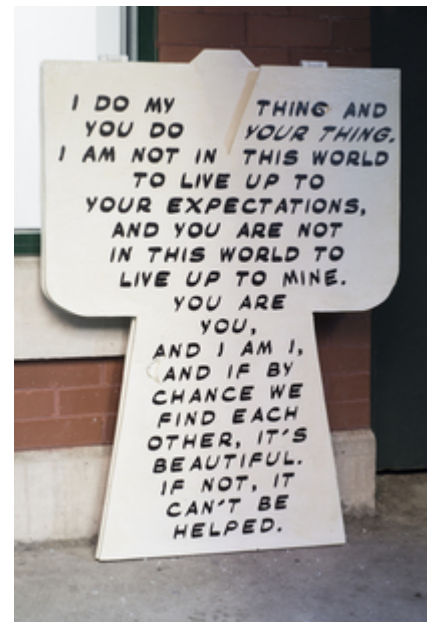 I DO MY THING AND
YOU DO YOUR THING.
I AM NOT IN THIS WORLD
TO LIVE UP TO
YOUR EXPECTATIONS,
AND YOU ARE NOT
IN THIS WORLD TO
LIVE UP TO MINE.
YOU ARE
YOU,
AND I AM I,
AND IF BY
CHANCE WE
FIND EACH
OTHER, IT'S
BEAUTIFUL.
IF NOT, IT
CAN'T BE
HELPED.